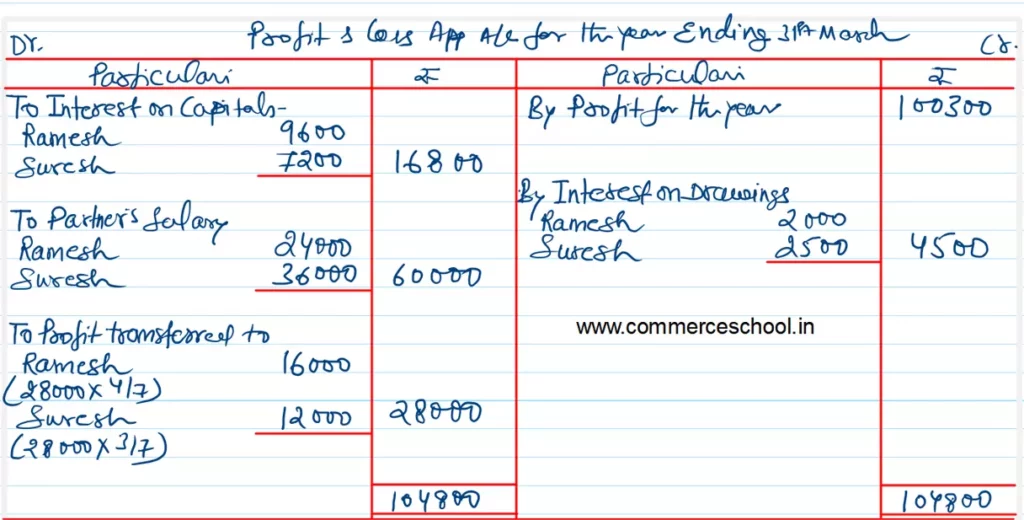 Profit & Loss App A/c for the year Ending 31st March
Dr. Cr.
Particulars ₹ Particulars ₹
To Interest on Capitals- By Profit for the year 100300
Ramesh 9600
Suresh 7200 16800
By Interest on Drawings
To Partner's Salary Ramesh 2000
Ramesh 24000 Suresh 2500 4500
Suresh 36000 60000
To Profit transferred to www.commerceschool.in
Ramesh 16000
(28000 x 4/7)
Suresh 12000 28000
(28000 x 3/7)
104800 104800